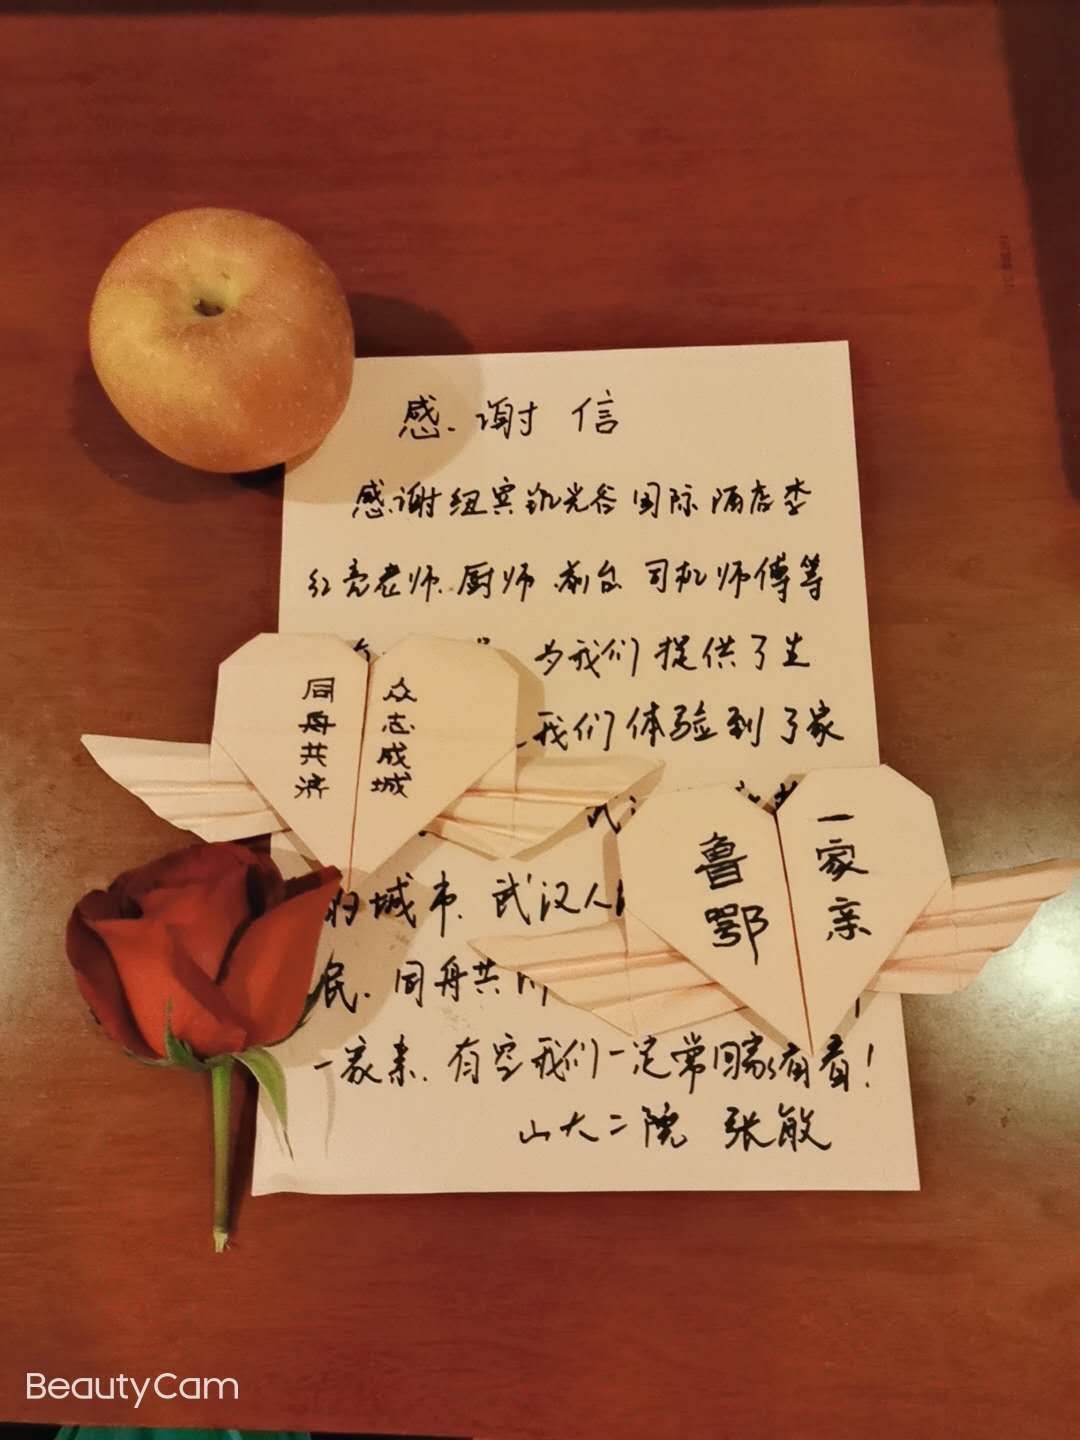 感谢信
感谢纽宾凯光谷国际酒店李
红亮老师、厨师、前台、司机师傅等
为我们提供了生
我们体验到了家
的城市、武汉人
民、同舟共
一家亲、有空我们一定常回家看看!
山大二院 张敏
众志成城
同舟共济
一家亲
鲁鄂
BeautyCam